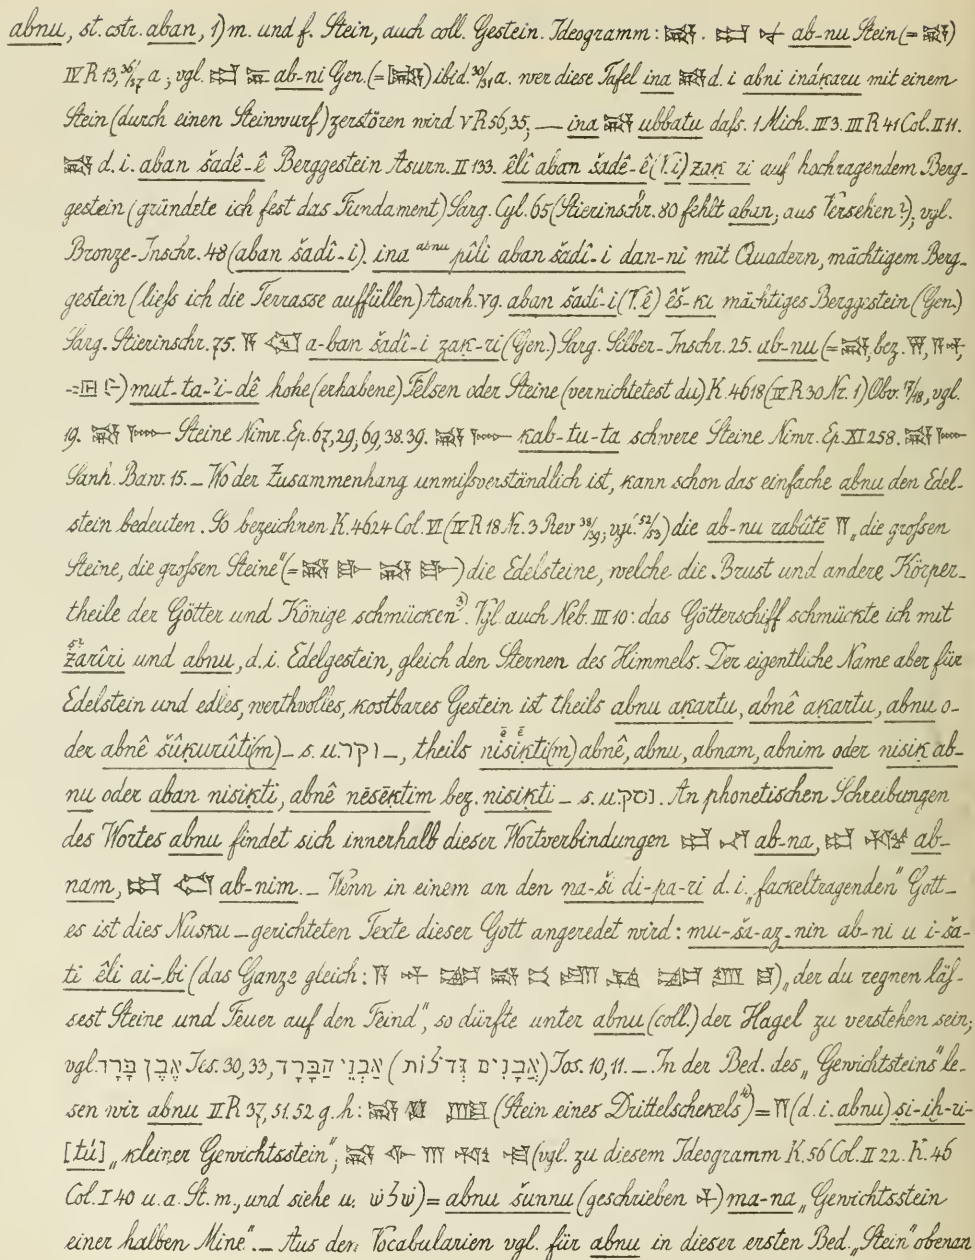 abnu, st. cstr. aban, 1) m. und f. Stein, auch coll. Gestein. Ideogramm: . ab-nu Stein (= )
IV R 13, 36/37 a; vgl. ab-ni Gen. (= ) ibid. 30/31 a. wer diese Tafel ina d. i abni inákaru mit einem
Stein (durch einen Steinwurf) zerstören wird V R 56, 35; — ina ubbatu dass. 1 Mich. III 3. III R 41 Col. II 11.
d. i. aban šadê-ê Berggestein Asurn. II 133. êli aban šadê-ê (V. i) zaḳ-ri auf hochragendem Berg-
gestein (gründete ich fest das Fundament) Sarg. Cyl. 65 (Stierinschr. 80 fehlt aban; aus Versehen?); vgl.
Bronze-Inschr. 48 (aban šadî-i). ina abnu pîli aban šadî-i dan-ni mit Quadern, mächtigem Berg-
gestein (liess ich die Terrasse auffüllen) Asarh. V 9. aban šadî-i (V. ê) êš-ḳi mächtiges Berggestein (Gen.)
Sarg. Stierinschr. 75. a-ban šadî-i zaḳ-ri (Gen.) Sarg. Silber-Inschr. 25. ab-nu (= , bez.
mut-ta-'i-dê hohe (erhabene) Felsen oder Steine (vernichtetest du) K. 4618 (IV R 30 Nr. 1) Obv. 17/18, vgl.
19. Steine Nimr. Ep. 67, 29; 69, 38. 39. kab-tu-ta schwere Steine Nimr. Ep. XI 258.
Sanh. Baw. 15. — Wo der Zusammenhang unmissverständlich ist, kann schon das einfache abnu den Edel-
stein bedeuten. So bezeichnen K. 4624 Col. VI (IV R 18 Nr. 3 Rev 38/39; vgl. 52/53) die ab-nu rabûtê „die grossen
Steine, die grossen Steine“ (= ) die Edelsteine, welche die Brust und andere Körper-
theile der Götter und Könige schmücken 3). Vgl. auch Neb. III 10: das Götterschiff schmückte ich mit
zarîri und abnu, d. i. Edelgestein, gleich den Sternen des Himmels. Der eigentliche Name aber für
Edelstein und edles, werthvolles, kostbares Gestein ist theils abnu aḳartu, abnê aḳartu, abnu o-
der abnê šûḳurûti(m) — s. u. וקר —, theils nisiḳti(m) abnê, abnu, abnam, abnim oder nisiḳ ab-
nu oder aban nisiḳti, abnê nêsêḳtim bez. nisiḳti — s. u. נסק. An phonetischen Schreibungen
des Wortes abnu findet sich innerhalb dieser Wortverbindungen ab-na, ab-
nam, ab-nim. — Wenn in einem an den na-ši di-pa-ri d. i. „fackeltragenden“ Gott —
es ist dies Nusku — gerichteten Texte dieser Gott angeredet wird: mu-ša-az-nin ab-ni u i-ša-
ti êli ai-bi (das Ganze gleich: ), „der du regnen läs-
sest Steine und Feuer auf den Feind“, so dürfte unter abnu (coll.) der Hagel zu verstehen sein;
vgl. אֶבֶן בָּרָד Jes. 30, 33, אַבְנֵי הַבָּרָד (אֲבָנִים גְּדֹלוֹת) Jos. 10, 11. — In der Bed. des „Gewichtsteins“ le-
sen wir abnu II R 37, 51. 52 g. h: (Stein eines Drittelschekels 4)) = (d. i. abnu) si-iḫ-ri-
[tú] „kleiner Gewichtsstein“; (vgl. zu diesem Ideogramm K. 56 Col. II 22. K. 46
Col. I 40 u. a. St. m., und siehe u. ) = abnu šunnu (geschrieben ) ma-na „Gewichtsstein
einer halben Mine“. — Aus den Vocabularien vgl. für abnu in dieser ersten Bed. „Stein“ obenan